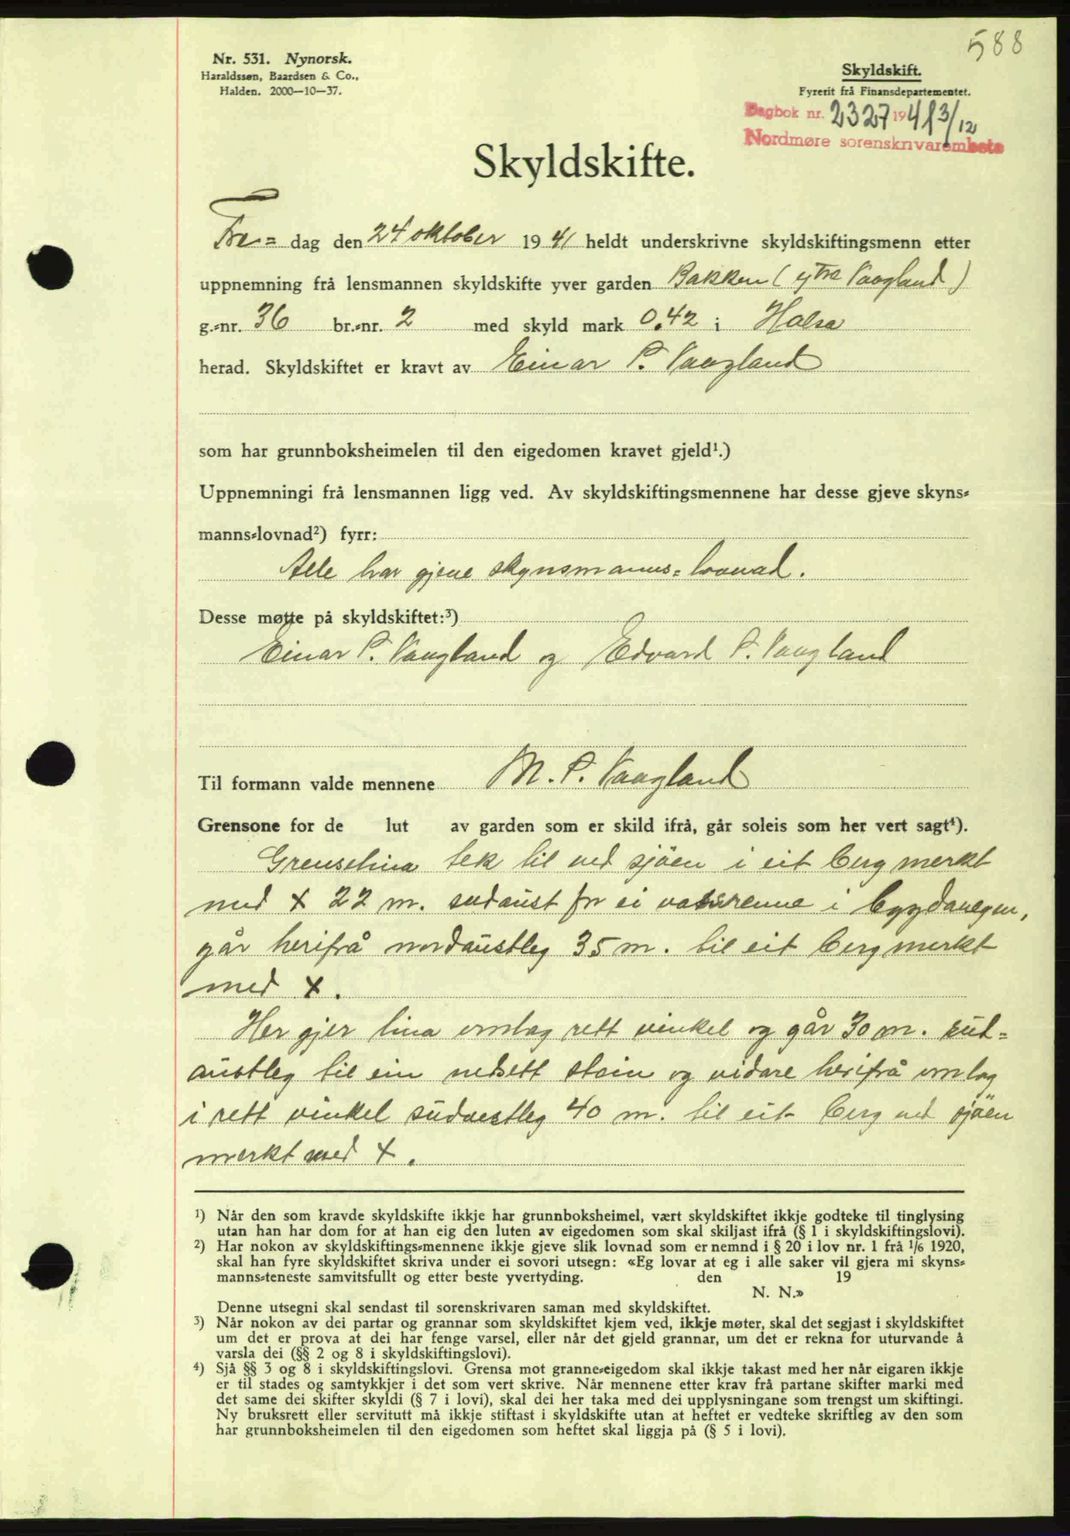 588
Nr. 531. Nynorsk.
Haraldssen, Baardsen & Co.,
Halden. 2000—10—37.
Skyldskift.
Fyrerit frå Finansdepartementet.
Dagbok nr. 2327 1941 3/12
Nordmøre sorenskrivarembete
Skyldskifte.
Fre= dag den 24 oktober 1941 heldt underskrivne skyldskiftingsmenn etter
uppnemning frå lensmannen skyldskifte yver garden Bakken (ytre Vaagland)
g.-nr. 36 br.-nr. 2 med skyld mark 0,42 i Halsa
herad. Skyldskiftet er kravt av Einar P. Vaagland
som har grunnboksheimelen til den eigedomen kravet gjeld¹.)
Uppnemningi frå lensmannen ligg ved. Av skyldskiftingsmennene har desse gjeve skyns-
manns-lovnad²) fyrr:
Alle har gjeve skynsmanns=lovnad.
Desse møtte på skyldskiftet:³)
Einar P. Vaagland og Edvard P. Vaagland
Til formann valde mennene M. P. Vaagland
Grensone for de lut av garden som er skild ifrå, går soleis som her vert sagt⁴).
Grenselina tek til ved sjöen i eit berg merkt
med X 22 m. sudaust for ei vassrenne i bygdavegen,
går herifrå nordaustleg 35 m. til eit berg merkt
med X.
Her gjer lina omlag rett vinkel og går 30 m. sud=
austleg til ein nedsett stein og vidare herifrå omlag
i rett vinkel südvestleg 40 m. til eit berg ved sjöen
merkt med X.
¹) Når den som kravde skyldskifte ikkje har grunnboksheimel, vært skyldskiftet ikkje godteke til tinglysing
utan han har dom for at han eig den luten av eigedomen som skal skiljast ifrå (§ 1 i skyldskiftingslovi).
²) Har nokon av skyldskiftings-mennene ikkje gjeve slik lovnad som er nemnd i § 20 i lov nr. 1 frå ¹/₆ 1920,
skal han fyre skyldskiftet skriva under ei sovori utsegn: «Eg lovar at eg i alle saker vil gjera mi skyns-
manns-teneste samvitsfullt og etter beste yvertyding. den 19
N. N.»
Denne utsegni skal sendast til sorenskrivaren saman med skyldskiftet.
³) Når nokon av dei partar og grannar som skyldskiftet kjem ved, ikkje møter, skal det segjast i skyldskiftet
um det er prova at dei har fenge varsel, eller når det gjeld grannar, um det er rekna for uturvande å
varsla dei (§§ 2 og 8 i skyldskiftingslovi).
⁴) Sjå §§ 3 og 8 i skyldskiftingslovi. Grensa mot granne-eigedom skal ikkje takast med her når eigaren ikkje
er til stades og samtykkjer i det som vert skrive. Når mennene etter krav frå partane skifter marki med
det same dei skifter skyldi (§ 7 i lovi), skal dei her taka med dei upplysningane som trengst um skiftingi.
Ny bruksrett eller servitutt må ikkje stiftast i skyldskifte utan at heftet er vedteke skriftleg av den som
har grunnboksheimelen til den eigedomen som heftet skal liggja på (§ 5 i lovi).